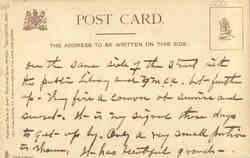 POST CARD.
THE ADDRESS TO BE WRITTEN ON THIS SIDE.
on the same side of the street with
the public library and Y.M.C.A. but further
up - They fire a cannon at sunrise and
sunset. It is my signal these days
to get up by. Only a very small portion
is shown, It has beautiful grounds -